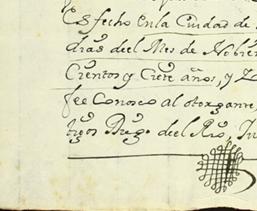 Es fecho en la Ciudad de
dias deel Mes de Nobien
Cientos y Ciete años, y
fee Conosco al otorgante,
tigos Diego deel Rio, Ju